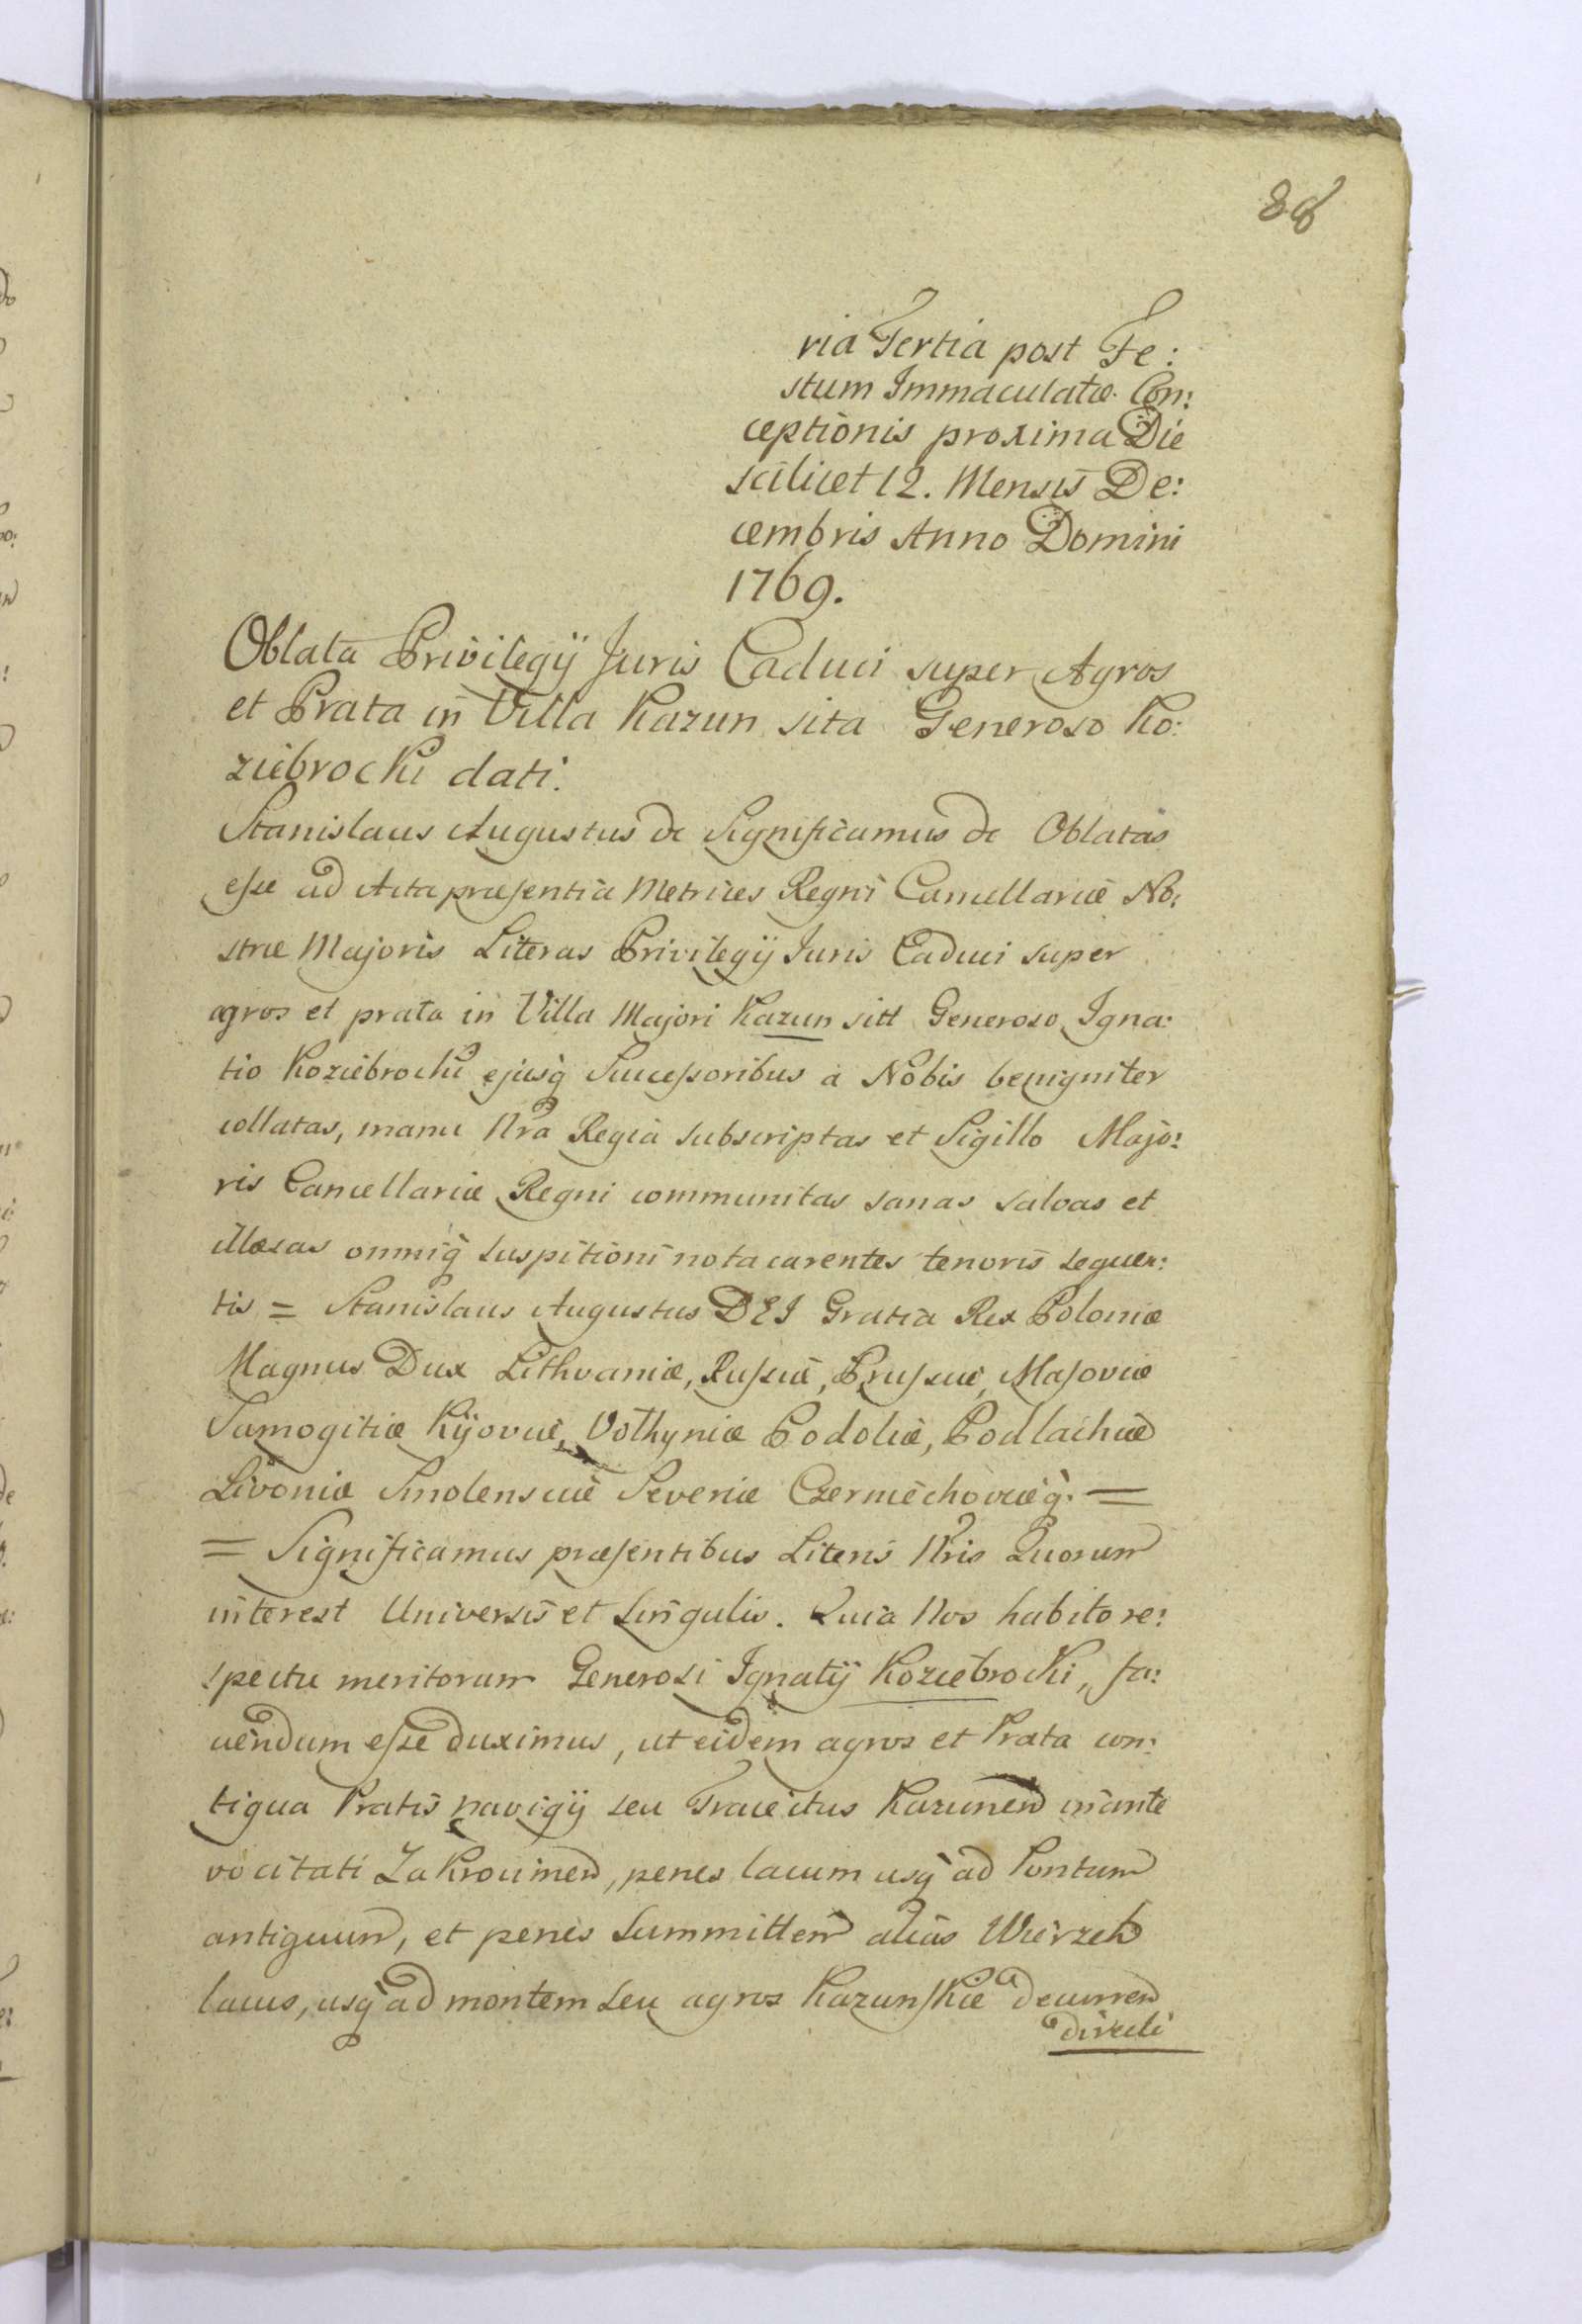 88
ria Tertia post Fe:
stum Immaculatæ Con:
ceptionis proxima Die
scilicet 12. Mensis De:
cembris Anno Domini
1769.
Oblata Privilegij Juris Caduci super Agros
et Prata in Villa Kazun sita Generoso Ko:
ziebrocki dati.
Stanislaus Augustus &c Significamus &c Oblatas
esse ad Acta præsentia Metrices Regni Cancellariæ No:
stræ Majoris Literas Privilegij Juris Caduci super
agros et prata in Villa Majori Kazun sitt Generoso Igna:
tio Koziebrocki ejusq Successoribus a Nobis benigniter
collatas, manu Nra Regia subscriptas et Sigillo Majo:
ris Cancellariæ Regni communitas sanas salvas et
illæsas omniq suspitioni nota carentes tenoris sequen:
tis = Stanislaus Augustus DEI Gratia Rex Poloniæ
Magnus Dux Lithvaniæ, Russiæ, Prussiæ, Masoviæ
Samogitiæ Kijoviæ, Volhyniæ Podoliæ, Podlachiæ
Livoniæ Smolensciæ Severiæ Czerniechoviæq. =
= Significamus præsentibus Literis Nris Quorum
interest Universis et Singulis. Quia Nos habito re:
spectu meritorum Generosi Ignatij Koziebrocki, fa:
vendum esse duximus, ut eidem agros et Prata con:
tigua Pratis navigij seu Traiectus Kazunen inante
vocitati Zakrocimen, penes lacum usq ad Pontum
antiquum, et penes Summitten alias Wierzch
lacus, usq ad montem seu agros Kazunskie decurren
directi